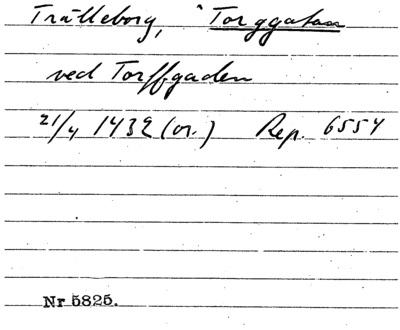 Trälleborg, *Torggatan
ved Torffgaden
21/4 1432 (or.) Rep. 6554
Nr 5825.